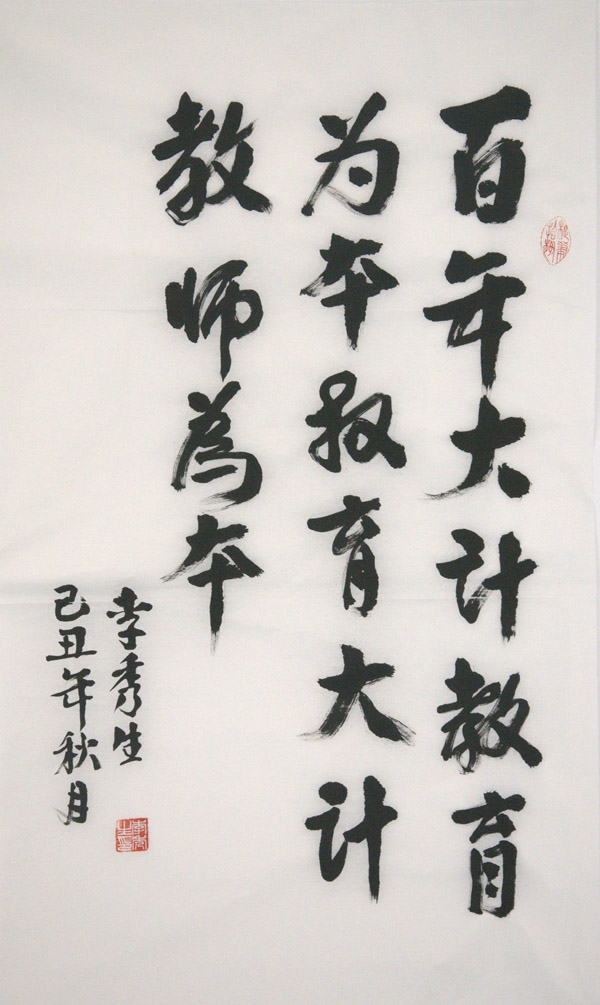 百年大计教育
为本教育大计
教师為本
李秀生
己丑年秋月